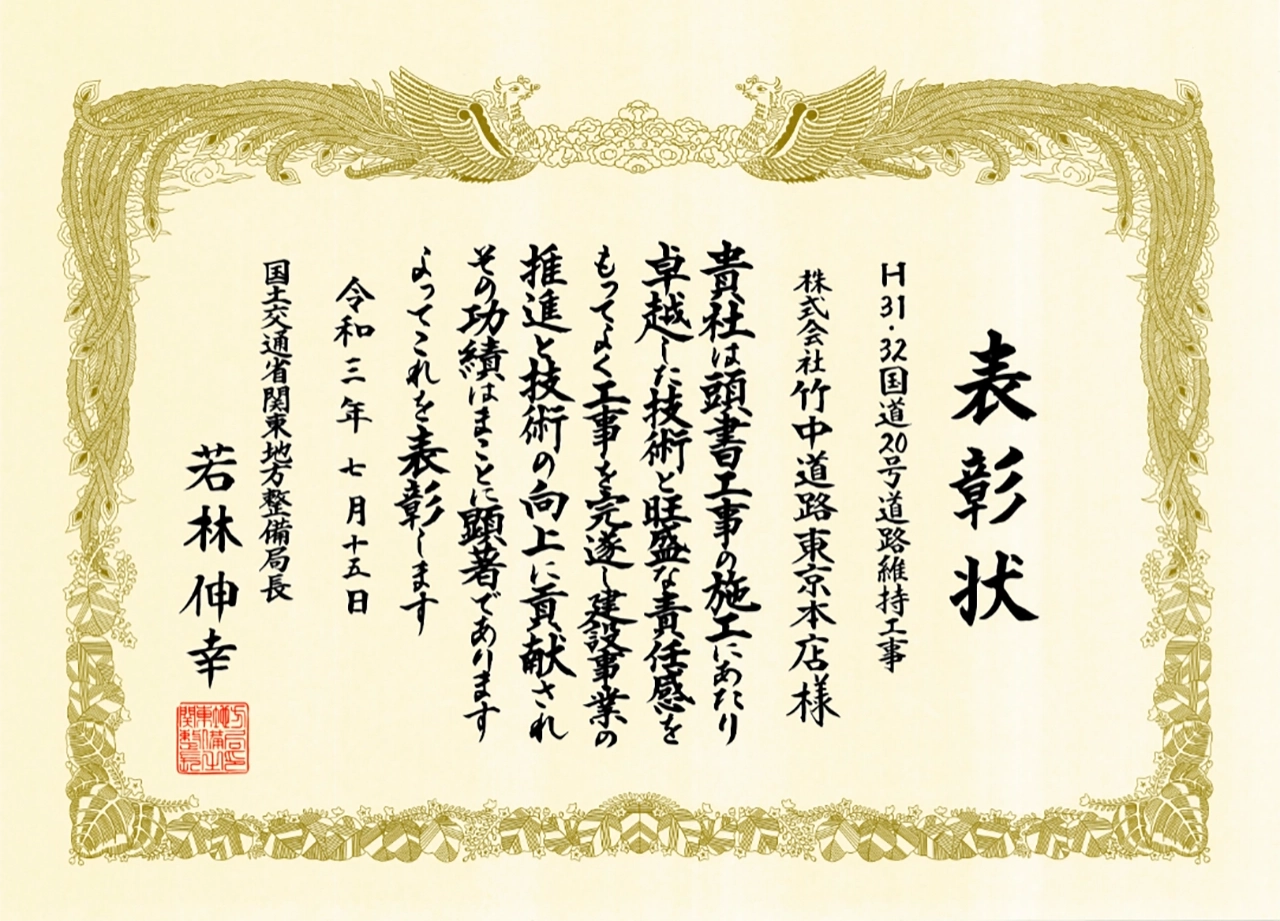 表彰状
H31・32国道20号道路維持工事
株式会社竹中道路東京本店様
貴社は頭書工事の施工にあたり
卓越した技術と旺盛な責任感を
もってよく工事を完遂し建設事業の
推進と技術の向上に貢献され
その功績はまことに顕著であります
よってこれを表彰します
令和三年七月十五日
国土交通省関東地方整備局長
若林伸幸